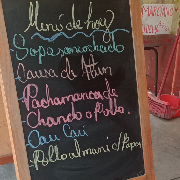 Menú de hoy
Sopa sancochado
Causa de Atún
Pachamanca de
Chancho o Pollo.
Cau Cau
Pollo al maní c/ Papas